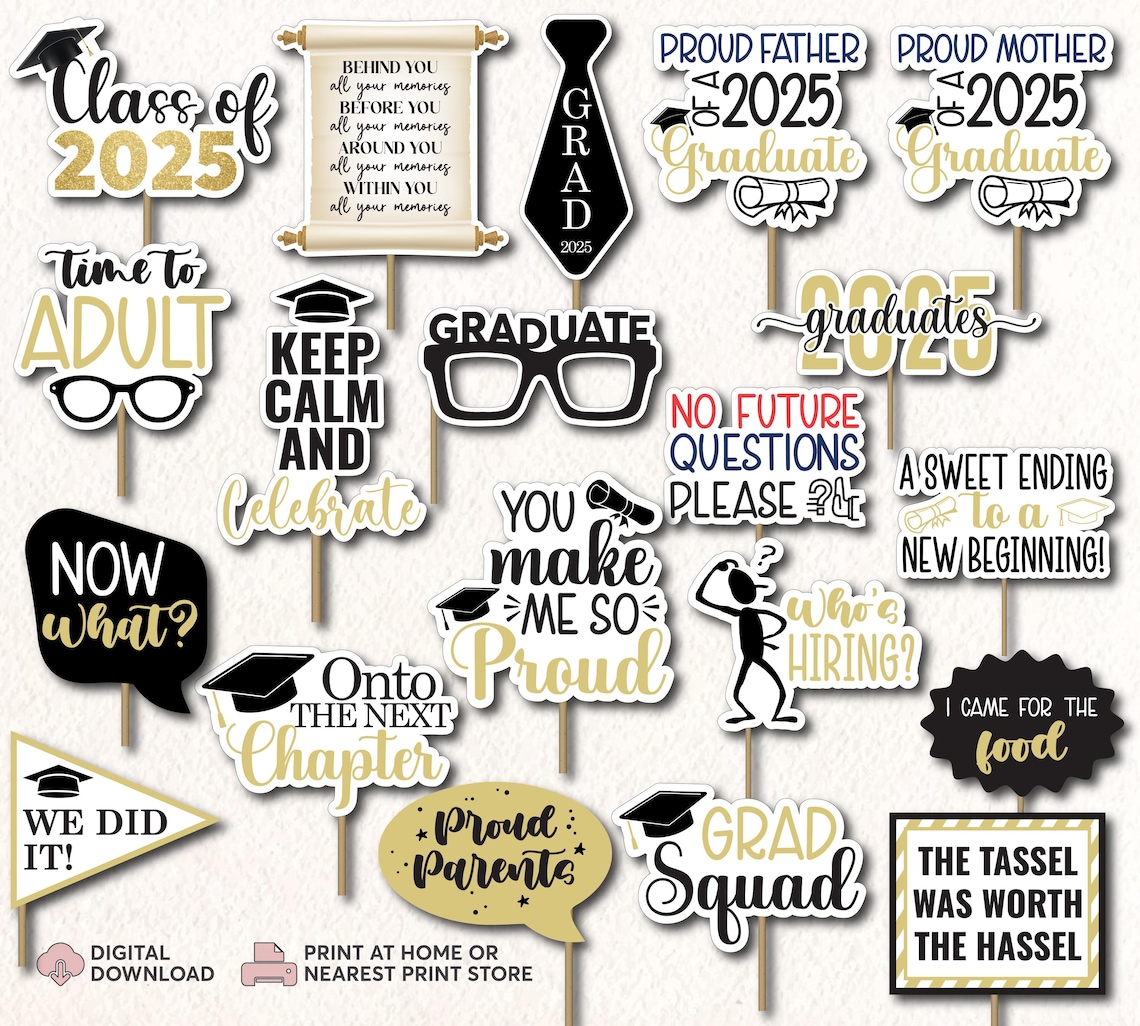 Class of
2025
BEHIND YOU
all your memories
BEFORE YOU
all your memories
AROUND YOU
all your memories
WITHIN YOU
all your memories
GRAD
2025
PROUD FATHER
OF A 2025
Graduate
PROUD MOTHER
OF A 2025
Graduate
time to
ADULT
KEEP
CALM
AND
Celebrate
GRADUATE
2025
graduates
NO FUTURE
QUESTIONS
PLEASE ?
A SWEET ENDING
to a
NEW BEGINNING!
NOW
what?
YOU
make
ME SO
Proud
?
Who's
HIRING?
Onto
THE NEXT
Chapter
I CAME FOR THE
food
WE DID
IT!
Proud
Parents
GRAD
Squad
THE TASSEL
WAS WORTH
THE HASSEL
DIGITAL
DOWNLOAD
PRINT AT HOME OR
NEAREST PRINT STORE